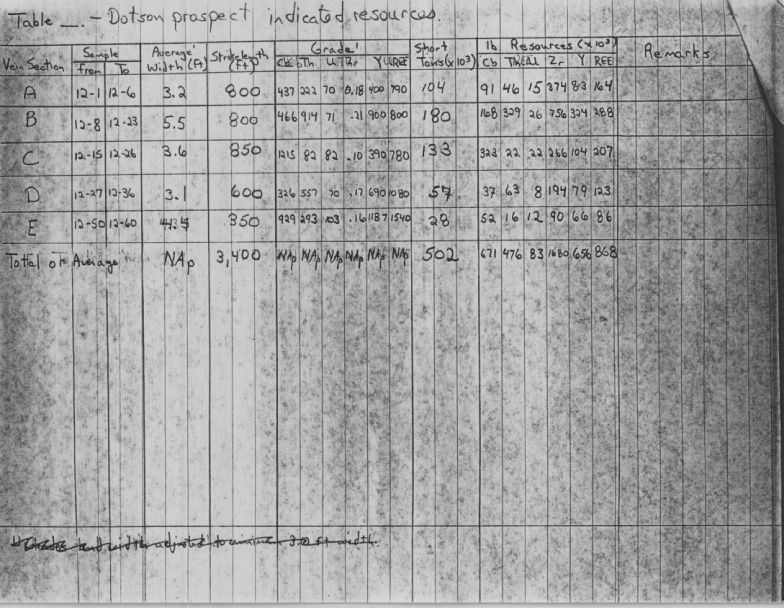 Table __. - Dotson prospect indicated resources.
Vein Section Sample Average' Width (Ft) Strike length (Ft) Grade' Short Tons (x10³) lb Resources (x10³) Remarks
From To Cb Th U Zr Y REE Cb Th U Zr Y REE
A 12-1 12-6 3.2 800 437 222 70 0.18 400 790 104 91 46 15 374 83 164
B 12-8 12-23 5.5 800 466 914 71 .21 900 800 180 168 329 26 756 324 288
C 12-15 12-26 3.6 850 1215 82 82 .10 390 780 133 323 22 22 266 104 207
D 12-27 12-36 3.1 600 326 557 70 .17 690 1080 57 37 63 8 194 79 123
E 12-50 12-60 350 929 293 103 .16 1187 1540 28 52 16 12 90 66 86
Total or Average NAp 3,400 NAp NAp NAp NAp NAp NAp 502 671 476 83 1680 656 868
adjusted to minimum 3.0 ft width.